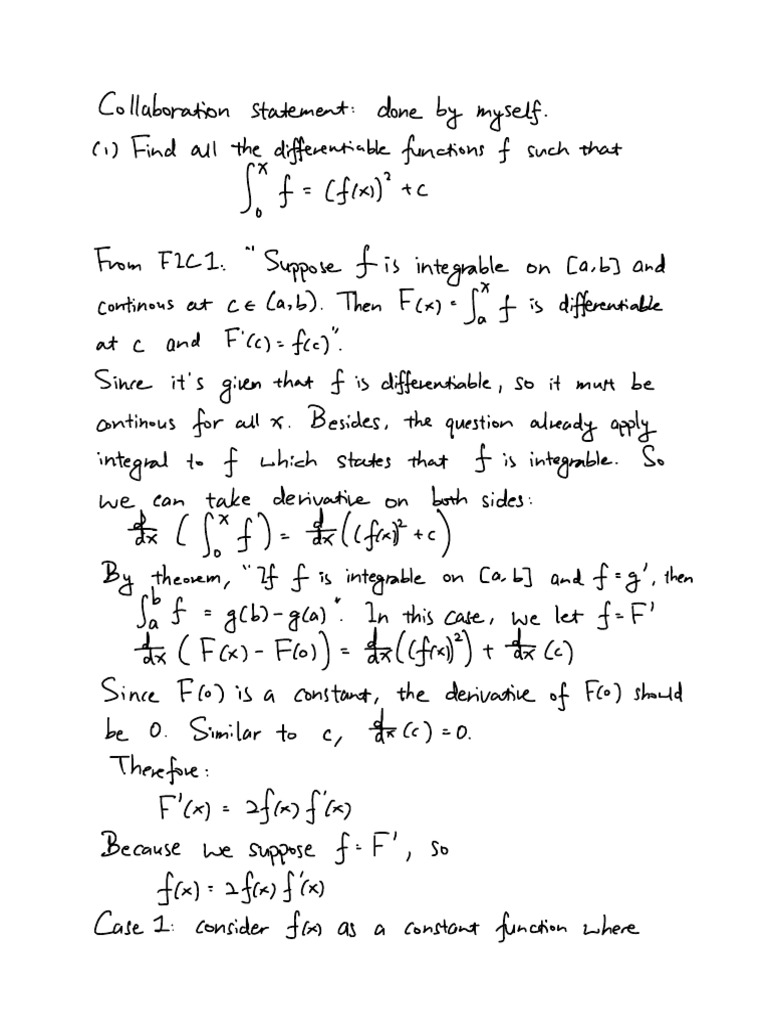 Collaboration statement: done by myself.
(1) Find all the differentiable functions f such that
∫₀ˣ f = (f(x))² + c
From F2C1: "Suppose f is integrable on [a,b] and
continous at c ∈ (a,b). Then F(x) = ∫ₐˣ f is differentiable
at c and F'(c) = f(c)".
Since it's given that f is differentiable, so it must be
continous for all x. Besides, the question already apply
integral to f which states that f is integrable. So
we can take derivative on both sides:
d/dx (∫₀ˣ f) = d/dx ((f(x))² + c)
By theorem, "If f is integrable on [a,b] and f = g', then
∫ₐᵇ f = g(b) - g(a)". In this case, we let f = F'
d/dx (F(x) - F(0)) = d/dx ((f(x))²) + d/dx (c)
Since F(0) is a constant, the derivative of F(0) should
be 0. Similar to c, d/dx (c) = 0.
Therefore:
F'(x) = 2f(x) f'(x)
Because we suppose f = F', so
f(x) = 2f(x) f'(x)
Case 1: consider f(x) as a constant function where